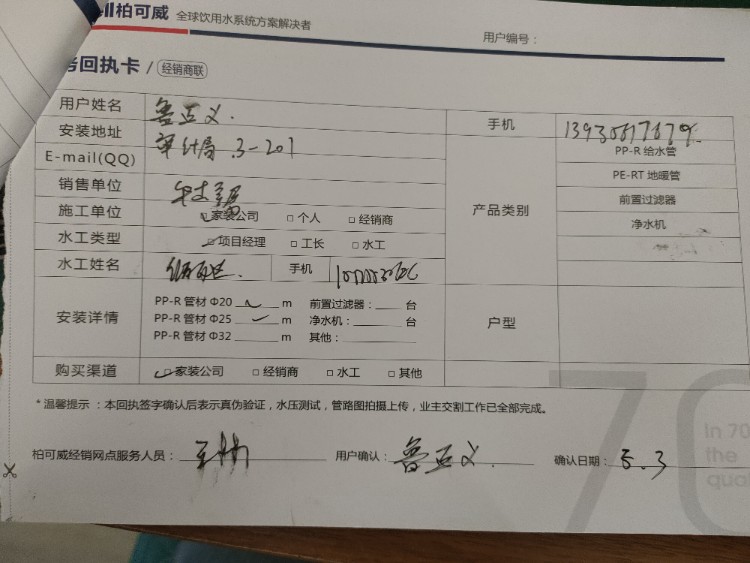 柏可威 全球饮用水系统方案解决者
用户编号：
回执卡 / 经销商联
用户姓名 鲁亚义 手机
安装地址 审计局 3-201 产品类别 PP-R 给水管
E-mail(QQ) PE-RT 地暖管
销售单位 前置过滤器
施工单位 家装公司 □ 个人 □ 经销商 净水机
水工类型 项目经理 □ 工长 □ 水工
水工姓名 手机
安装详情 PP-R 管材 Φ20 m 前置过滤器： 台 户型
PP-R 管材 Φ25 m 净水机： 台
PP-R 管材 Φ32 m 其他：
购买渠道 家装公司 □ 经销商 □ 水工 □ 其他
*温馨提示：本回执签字确认后表示真伪验证，水压测试，管路图拍摄上传，业主交割工作已全部完成。
柏可威经销网点服务人员： 用户确认： 鲁亚义 确认日期： 5.3
70
In 70
the
qua